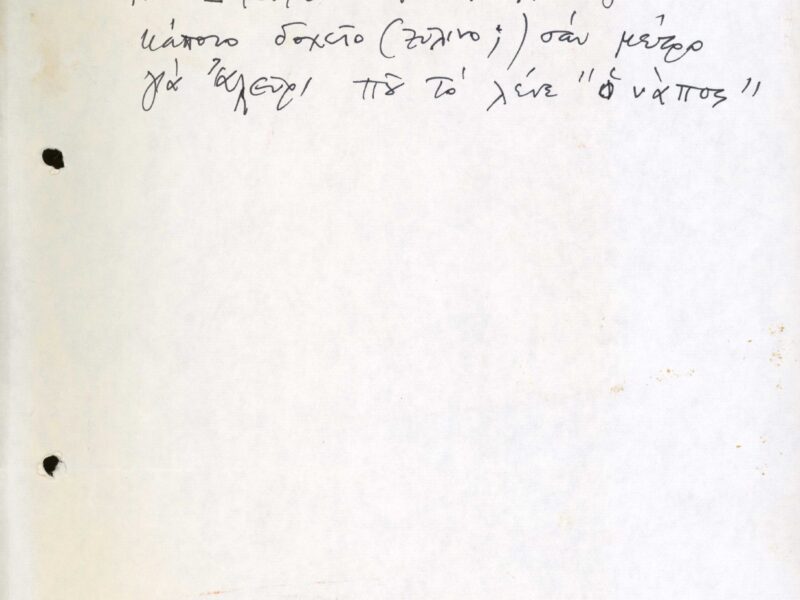 κάποιο δοχεῖο (ξύλινο;) σάν μέτρο
γιά ἀλεύρι πȣ̃ τό λένε "ὁ νάπος"